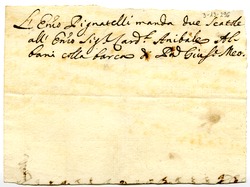 L' Emo Pignatelli manda due Scatole
all' Emo Sigr Card.l Anibale Al-
bani colla barca di Pad Giuse Meo.